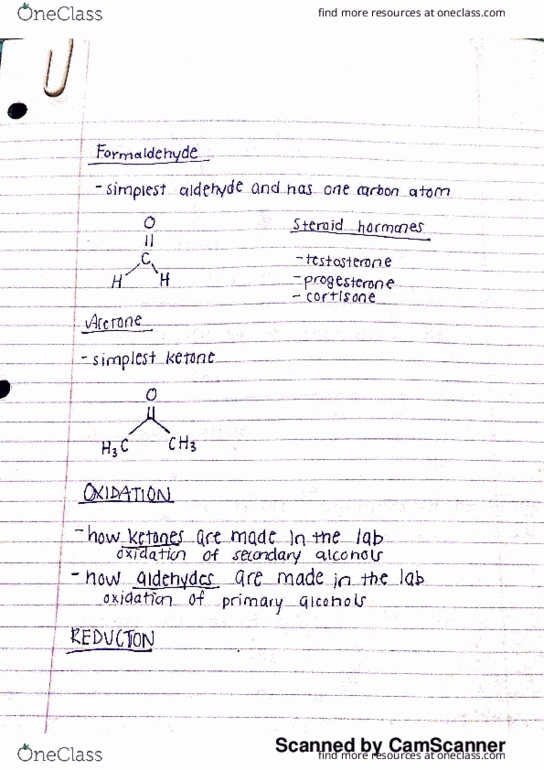 OneClass
find more resources at oneclass.com
Formaldehyde
- simplest aldehyde and has one carbon atom
O
C
H H
Steroid hormones
- testosterone
- progesterone
- cortisone
Acetone
- simplest ketone
O
H3C CH3
OXIDATION
- how ketones are made in the lab
oxidation of secondary alcohols
- how aldehydes are made in the lab
oxidation of primary alcohols
REDUCTON
Scanned by CamScanner
OneClass
find more resources at oneclass.com